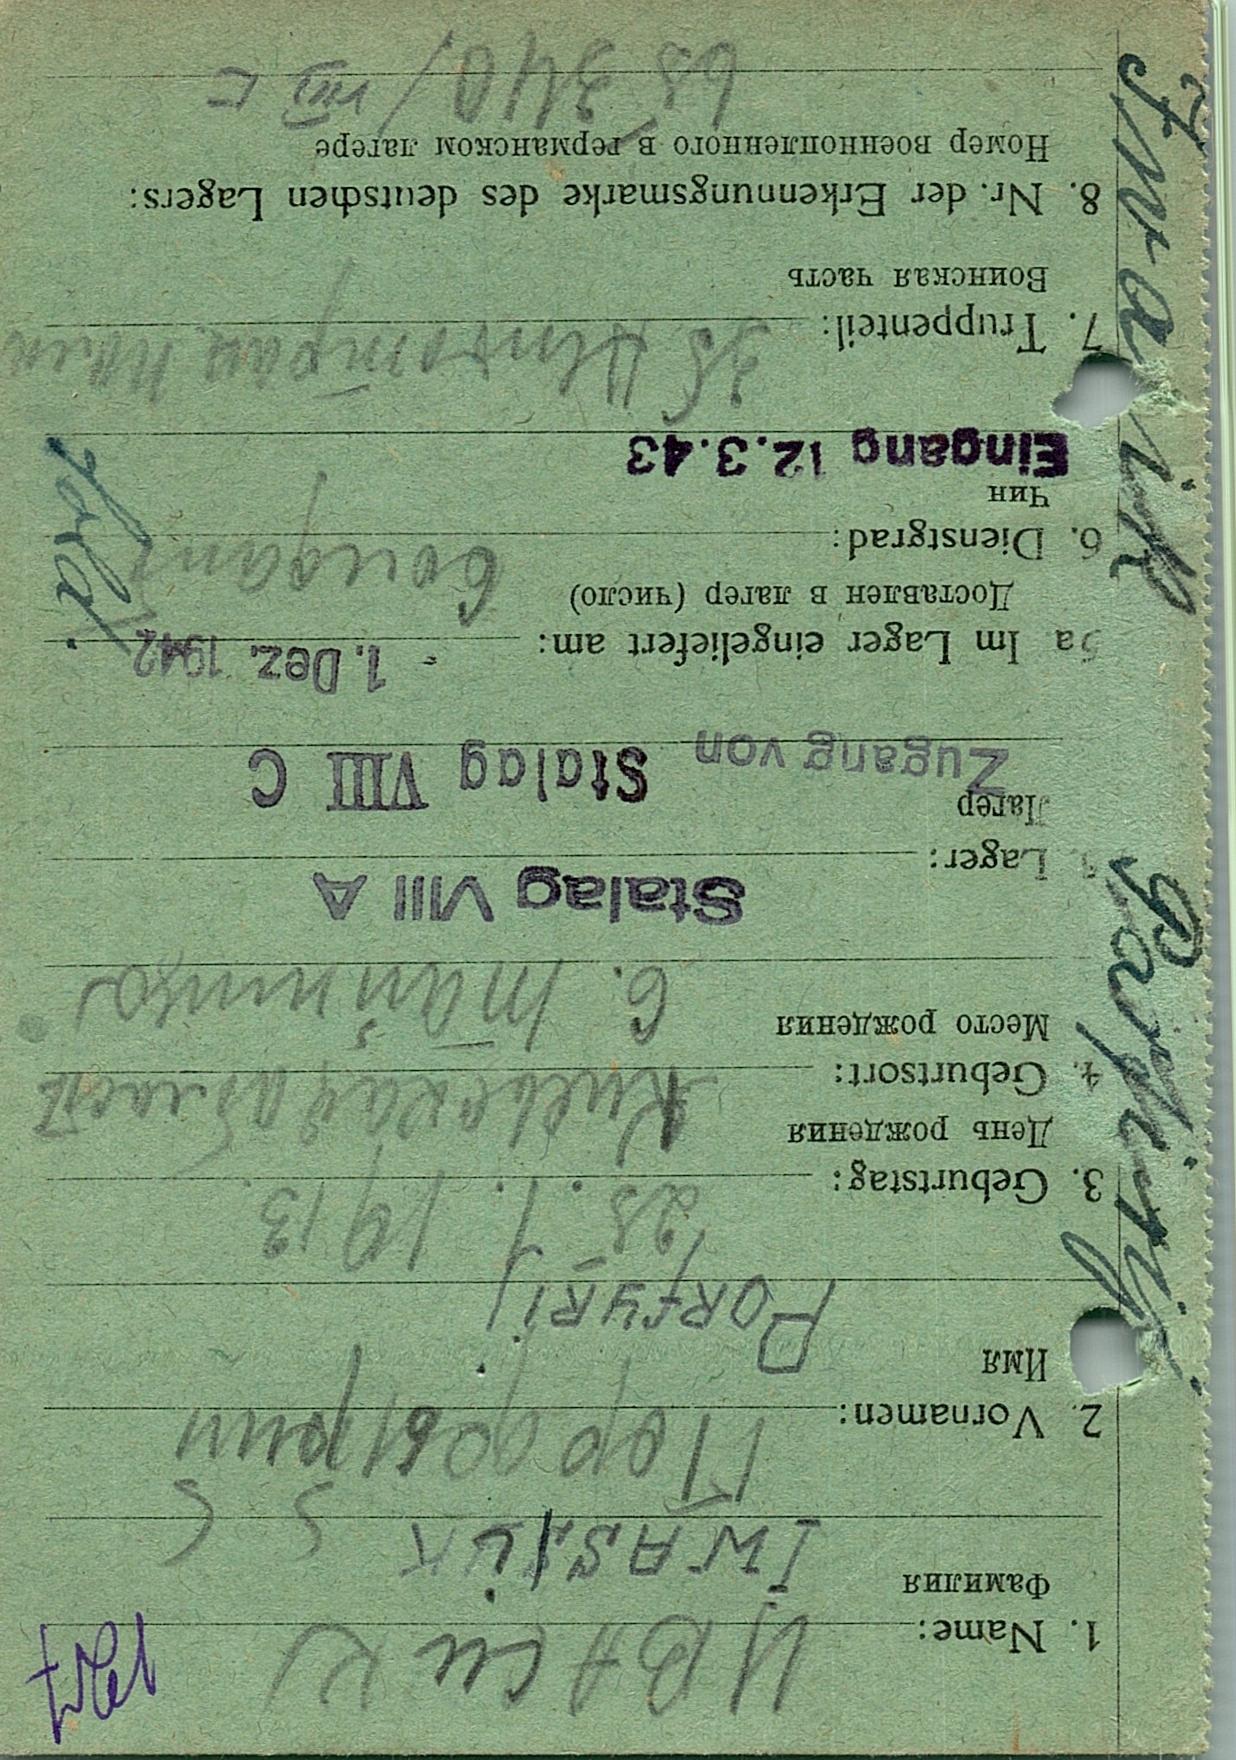 1. Name: ИВАСИК
Фамилия
IWASIUK
2. Vornamen: Порфырий
Имя
PORFYRIJ
3. Geburtstag: 25. 1. 1913.
День рождения
4. Geburtsort: Киевская область
Место рождения
с.
Stalag VIII A
Lager:
Лагер
Zugang von Stalag VIII C
5a Im Lager eingeliefert am: 1. Dez. 1942
Доставлен в лагер (число)
6. Dienstgrad: Солдат Sold.
Чин
Eingang 12.3.43
7. Truppenteil: 38
Воинская часть
8. Nr. der Erkennungsmarke des deutschen Lagers:
Номер военнопленного в германском лагере
/ VIII C
Porfirij